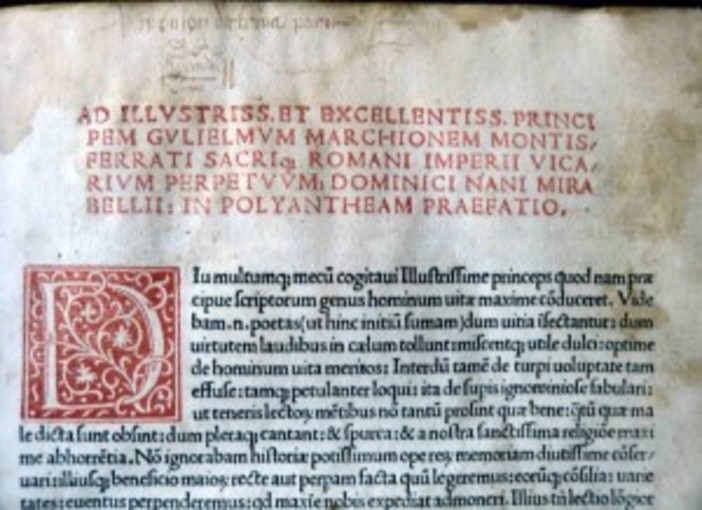 AD ILLVSTRISS. ET EXCELLENTISS. PRINCI
PEM GVLIELMVM MARCHIONEM MONTIS,
FERRATI SACRIq; ROMANI IMPERII VICA,
RIVM PERPETVVM: DOMINICI NANI MIRA
BELLII: IN POLYANTHEAM PRAEFATIO.
DIu multumq; mecū cogitaui Illustrissime princeps quod nam præ
cipue scriptorum genus hominum uitæ maxime cōduceret. Vide
bam.n.poetas(ut hinc initiū sumam)dum uitia īsectantur: dum
uirtutem laudibus in cælum tollunt: miscentq; utile dulci: optime
de hominum uita meritos: Interdū tamē de turpi uoluptate tam
effuse: tamq; petulanter loqui: ita de supis ignominiose fabulari:
ut teneris lectoꝝ mētibus nō tantū prosint quæ bene: q̄tū quæ ma
le dicta sunt obsint: dum pleraq; cantant: & spurca: & a nostra sanctissima religiōe maxi
me abhorrētia. Nō ignorabam historiæ potissimum ope reꝝ memoriam diutissime cōser/
uari: illiusq; beneficio maioꝝ recte aut perpam facta quū legeremus: eorūq; cōsilia: uarie
tates: euentus perpenderemus: qd maxīe nobis expediat admoneri. Illius tn̄ lectio lōgior